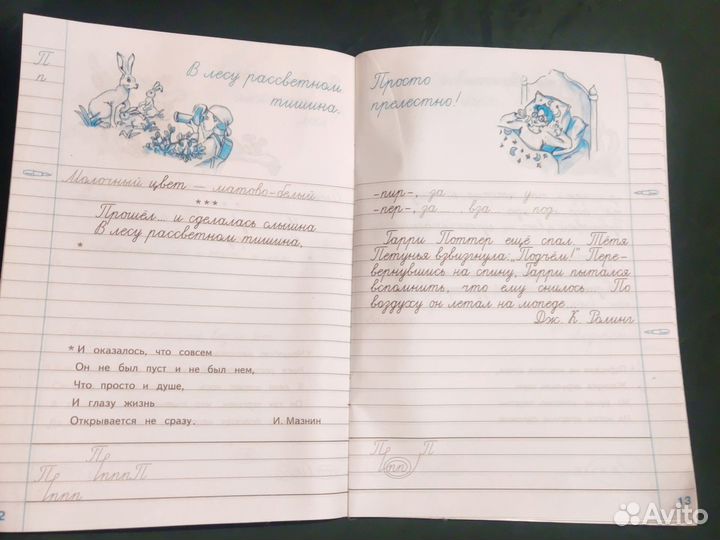 П
п
В лесу рассветном
тишина.
Молочный цвет — матово-белый.
***
Прошёл... и сделалась слышна
В лесу рассветном тишина,
*
* И оказалось, что совсем
Он не был пуст и не был нем,
Что просто и душе,
И глазу жизнь
Открывается не сразу. И. Мазнин
Пе
Пе пппП
пппп
2
Просто
прелестно!
-пир-, за у
-пер-, за вза под
Гарри Поттер ещё спал. Тётя
Петунья взвизгнула: „Подъём!" Пере-
вернувшись на спину, Гарри пытался
вспомнить, что ему снилось... По
воздуху он летал на мопеде...
Дж. К. Ролинг
П пп П
13
Avito